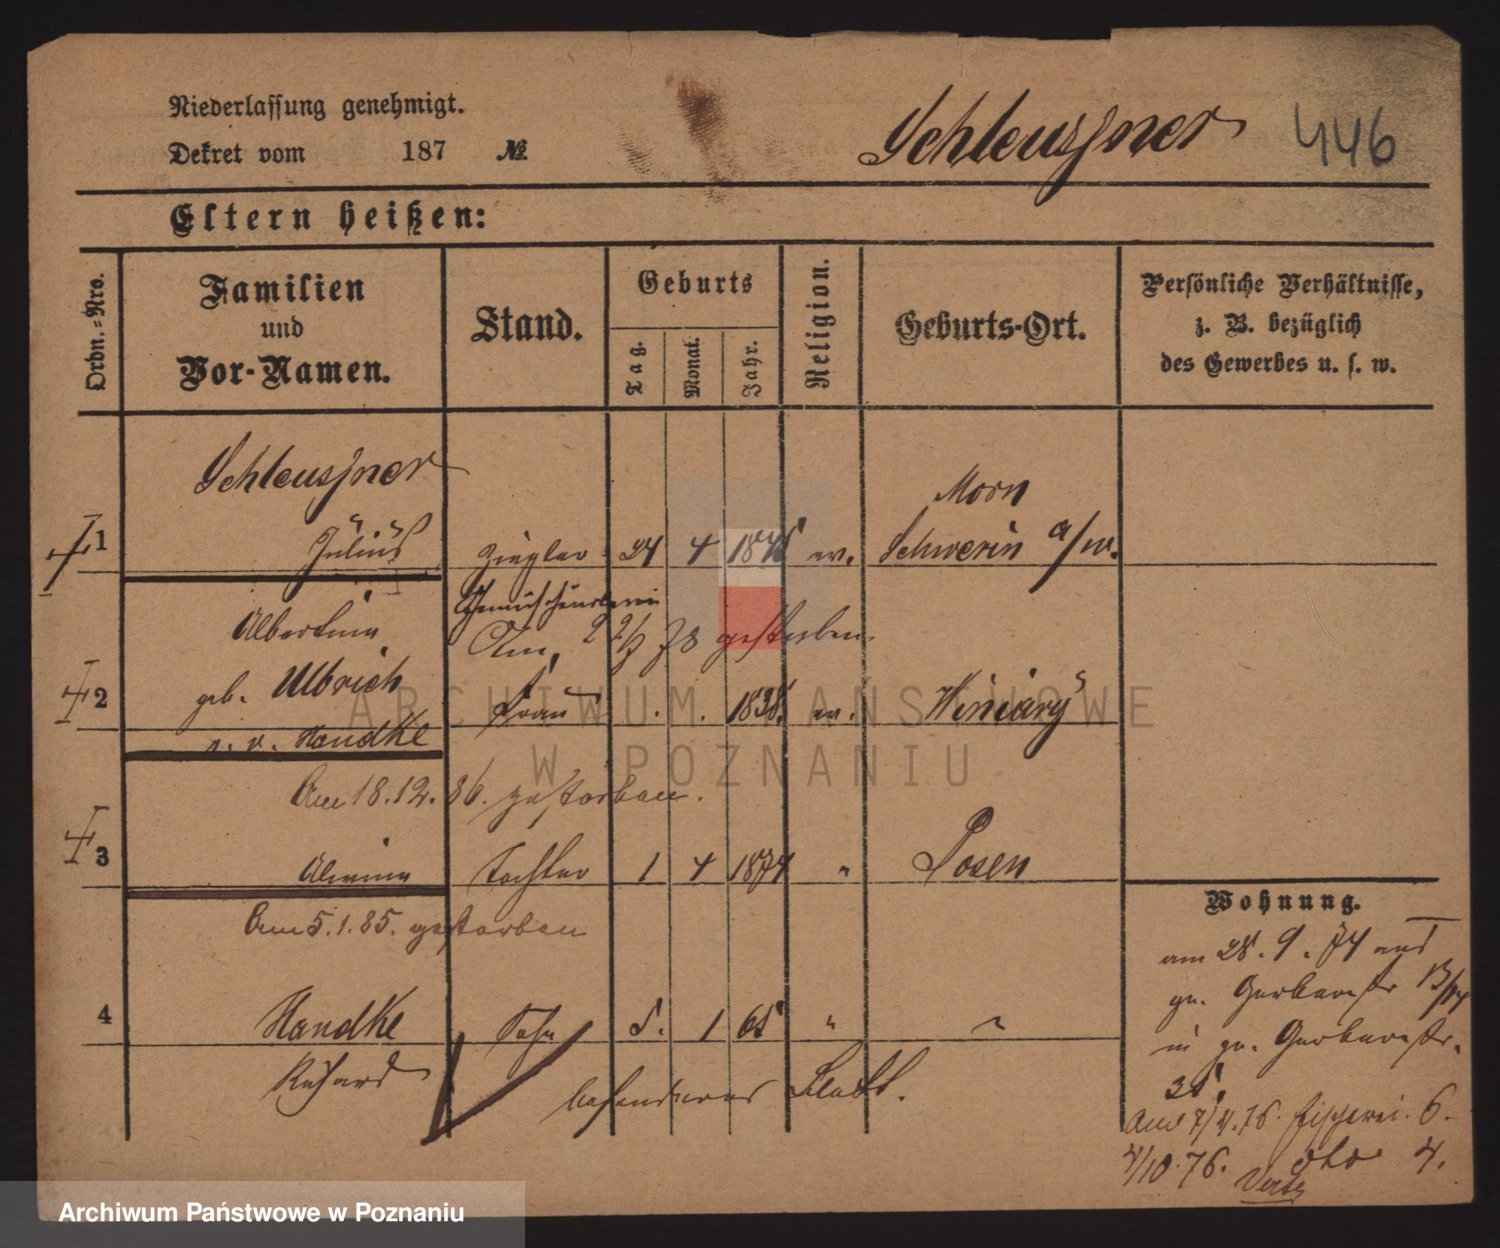 Niederlassung genehmigt.
Dekret vom 187 №
Schleusner 446
Eltern heißen:
Ordn.-Nro.
Familien und Vor-Namen.
Stand.
Geburts
Tag.
Monat.
Jahr.
Religion.
Geburts-Ort.
Persönliche Verhältnisse,
z. B. bezüglich
des Gewerbes u. s. w.
Schleusner
Morn
1 Julius Ziegler 24 4 1845 ev. Schwerin a/w.
Albertine
Am 2 gestorben.
geb. Ulbrich
2 Frau 1838. ev. Winiary
Handke
Am 18.12.86. gestorben.
3 Alwine Tochter 1 4 1874 " Posen
Am 5.1.85. gestorben
4 Handke Sohn 5. 1 65 " "
Richard
besonderes Blatt.
Wohnung.
am 28.9.74 aus
gr. Gerberstr 13/14
in gr. Gerberstr.
35.
Fischerei. 6.
4/10.76. dto 4.
Verte
ARCHIWUM PAŃSTWOWE
W POZNANIU
Archiwum Państwowe w Poznaniu